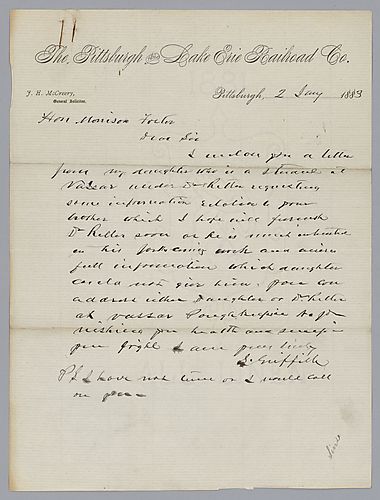 The Pittsburgh and Lake Erie Railroad Co.
J. H. McCreery,
General Solicitor.
Pittsburgh, 2 Jany 1883
Hon Morrison Foster
Dear Sir
I enclose you a letter
from my daughter who is a student at
Vassar under Dr Ritter requesting
some information relative to your
brother which I hope will furnish
Dr Ritter soon as he is much interested
in his forthcoming work and
full information which daughter
could not give him. you can
address either Daughter or Dr Ritter
at Vassar Poughkeepsie N.Y.
wishing you health and
I am yours truly
J. Griffith
PS I have not time or I would call
on you